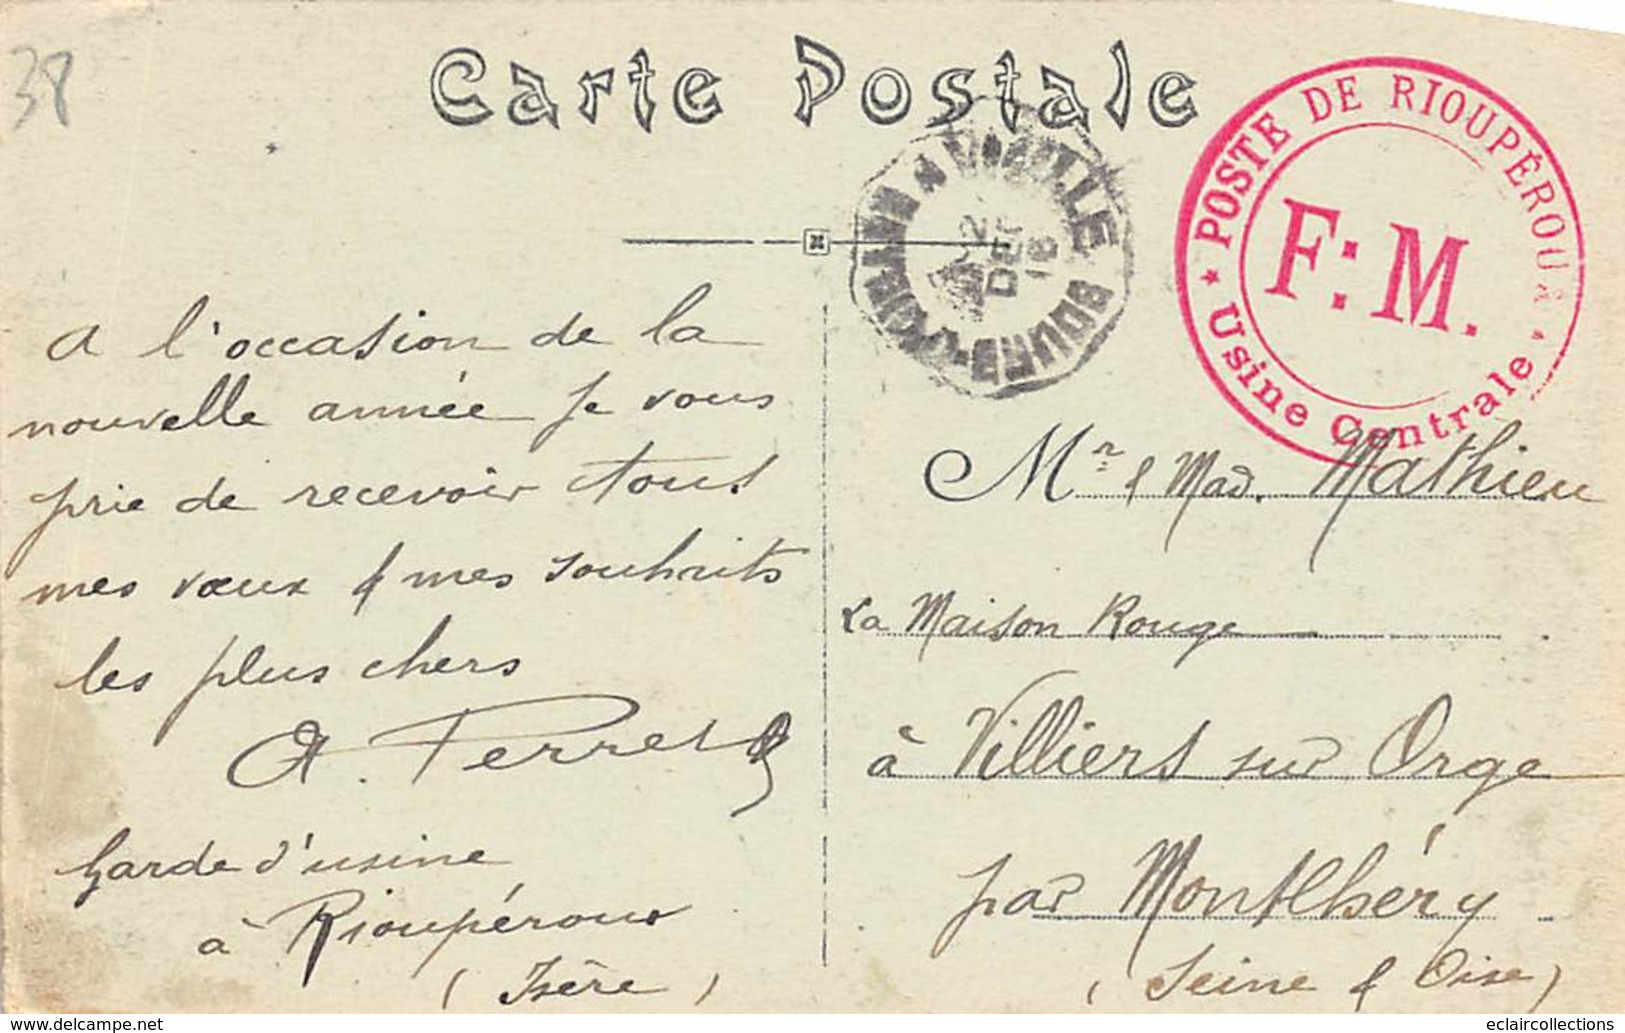 38
Carte Postale
POSTE DE RIOUPÉROUX
F: M.
Usine Centrale
DEC
A l'occasion de la
nouvelle année je vous
prie de recevoir tous
mes vœux & mes souhaits
les plus chers
A. Perret
Garde d'usine
à Rioupéroux
(Isère)
Mr & Mad. Mathieu
La Maison Rouge
à Villiers sur Orge
par Montlhéry
(Seine & Oise)
www.delcampe.net
eclaircollections